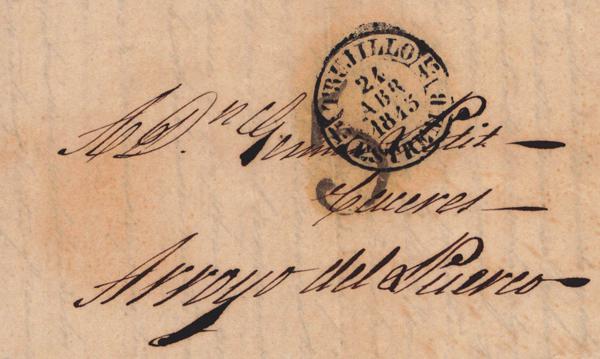 TRUJILLO
24
ABR
1845
ESTREM. B.
A D.n
Caceres
Arroyo del Puerco